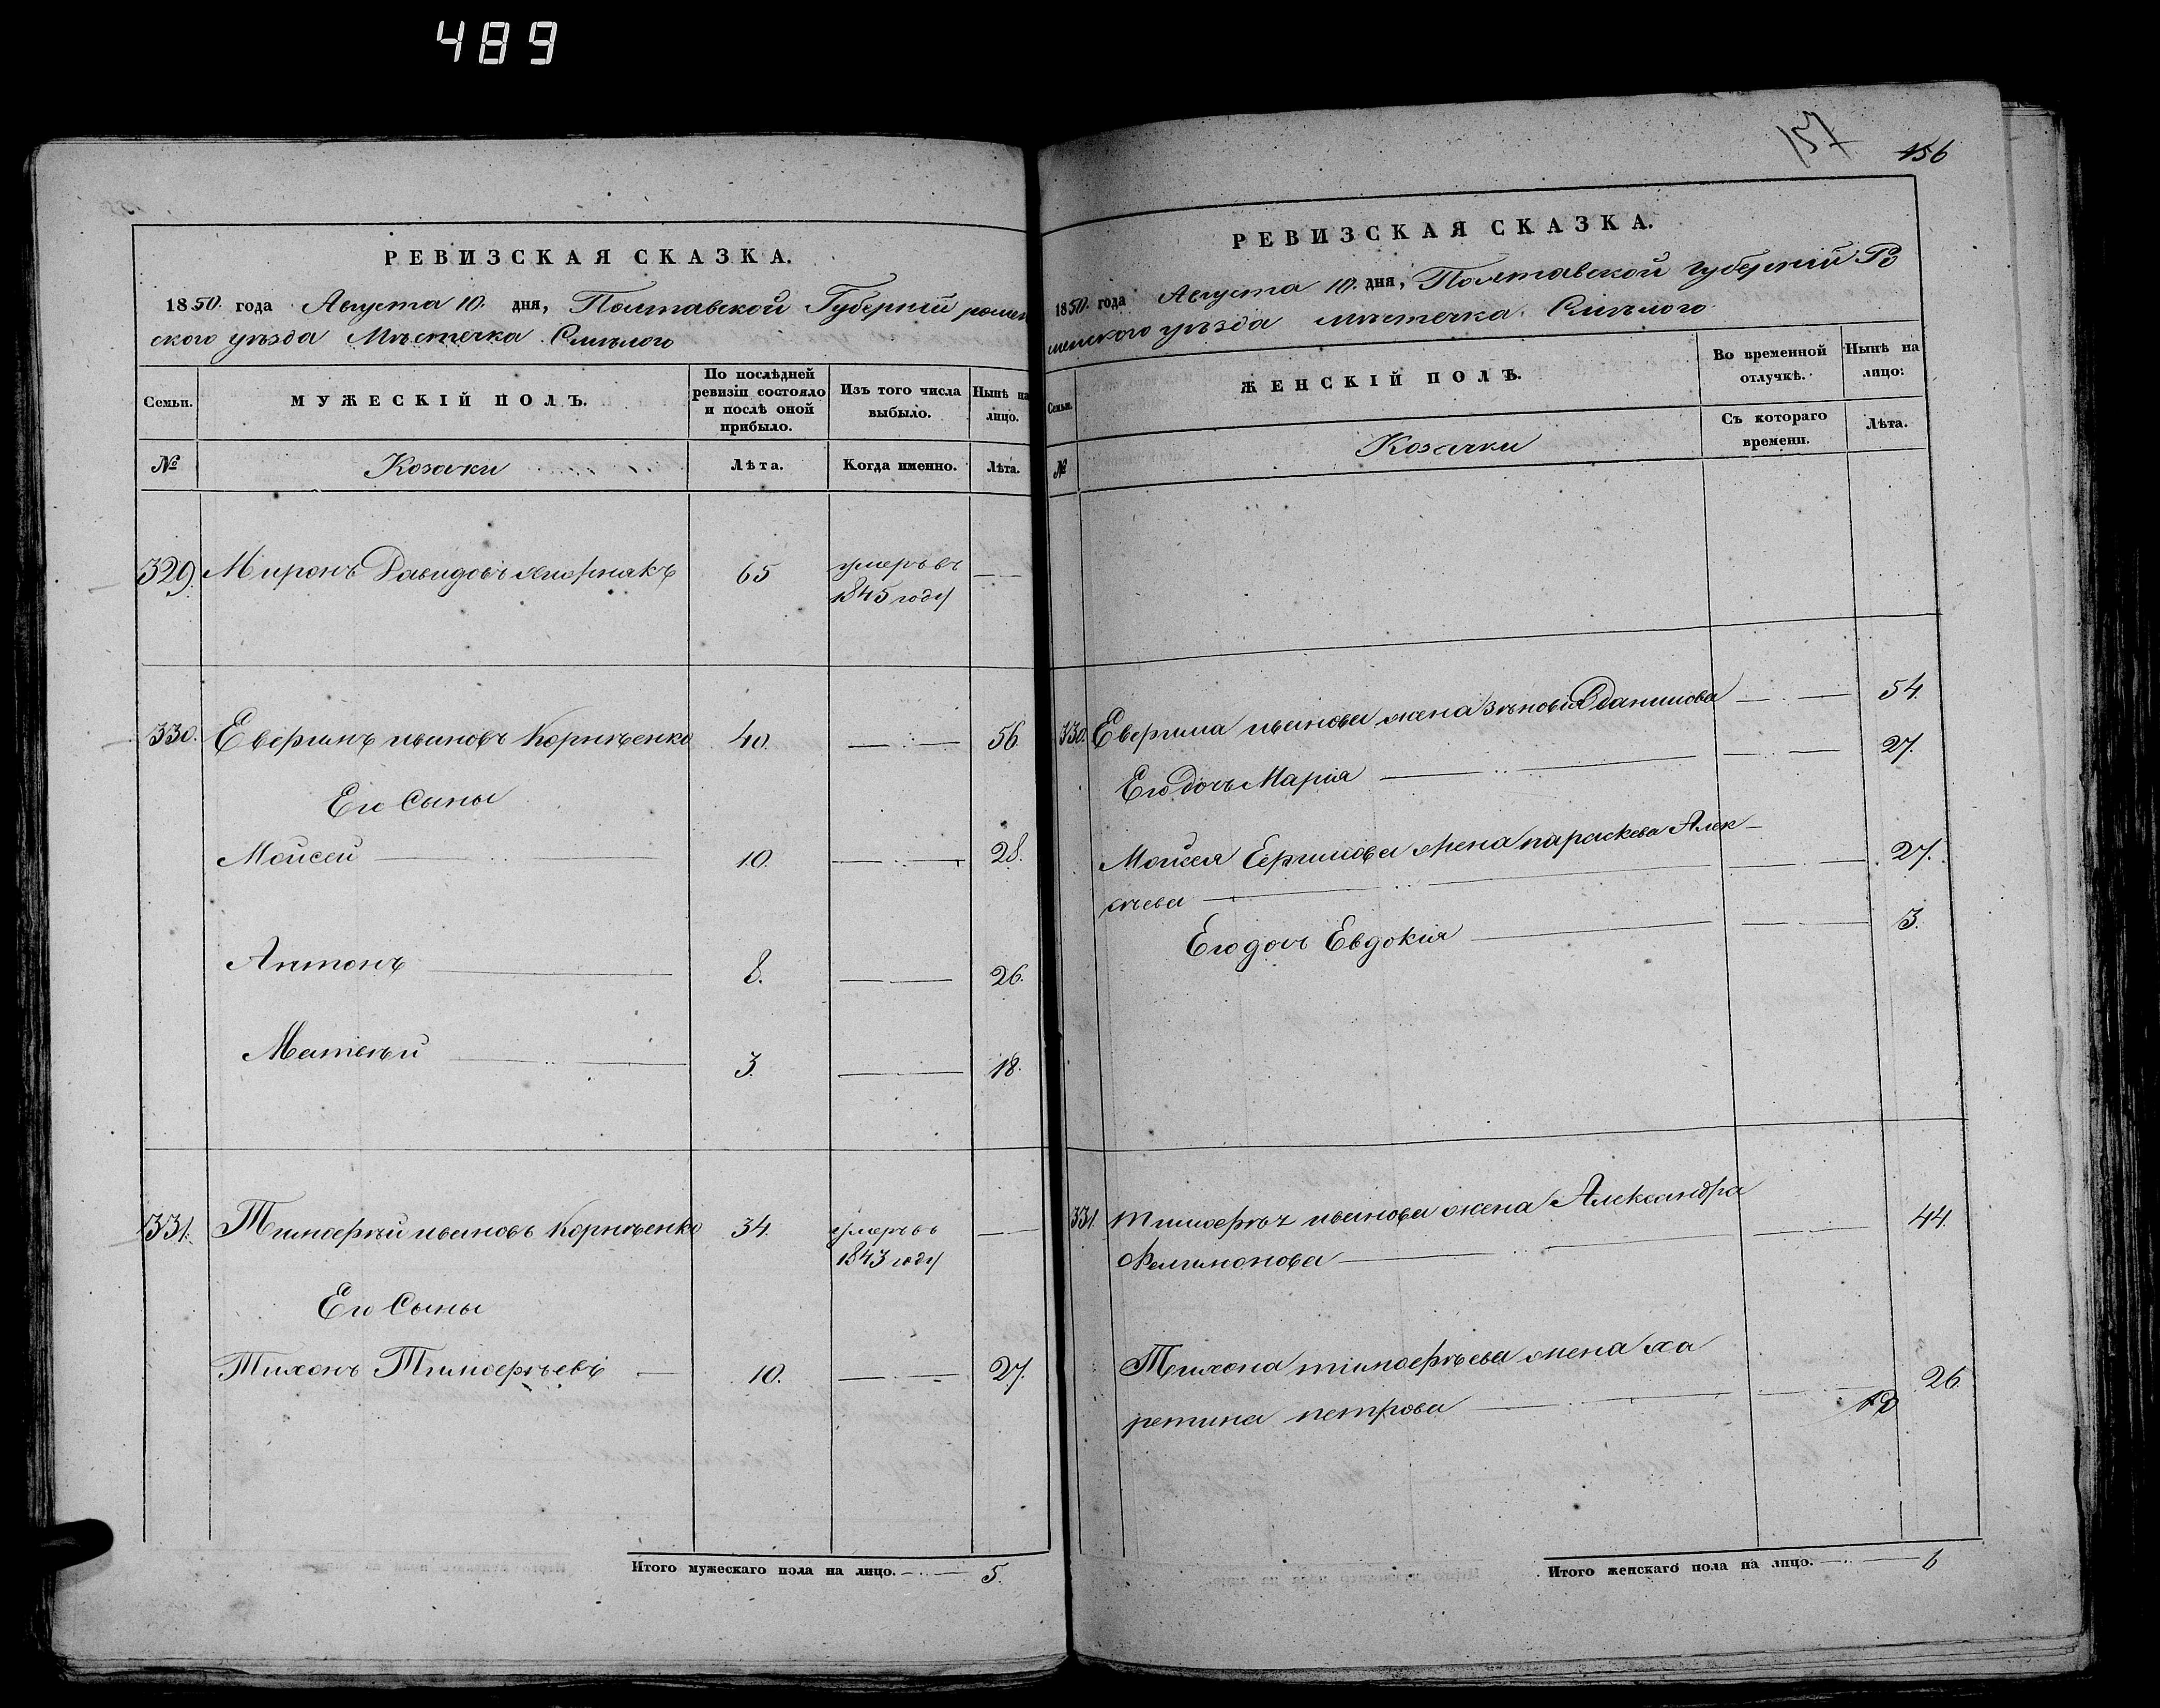 489
РЕВИЗСКАЯ СКАЗКА.
1850. года Августа 10. дня, Полтавской Губерніи ромен
ского уѣзда Мѣстечка Смѣлого
Семьи.
МУЖЕСКІЙ ПОЛЪ.
По послѣдней ревизіи состояло и послѣ оной прибыло.
Изъ того числа выбыло.
Нынѣ на лицо.
№
Козаки
Лѣта.
Когда именно.
Лѣта.
329. Миронъ Давидовъ 65 умеръ въ
1845 году
330. Еферимъ ивановъ Корнѣенко 40. 56.
Его Сыны
Моисей 10. 28.
Антонъ 8. 26.
Матвѣй 3. 18.
331. Тимоерѣй ивановъ Корнѣенко 34. умеръ въ
1843 году
Его Сыны
Тихонъ Тимоерѣевъ 10. 27.
Итого мужескаго пола на лицо. 5.
157 156
РЕВИЗСКАЯ СКАЗКА.
1850. года Августа 10. дня, Полтавской губерніи Ро
менского уѣзда мѣстечка Смѣлого
Семьи.
ЖЕНСКІЙ ПОЛЪ.
Во временной отлучкѣ.
Нынѣ на лицо:
Съ котораго времени.
Лѣта.
№
Козачки
330. иванова жена Данилова 54.
Его дочь Марія 27.
Моисея жена параскева Алек-
сѣева 27.
Его дочь Евдокія 3.
331. иванова жена Александра 44.
Филимонова
Тихона тимоерѣева жена ха
ретина петрова 26.
Итого женскаго пола на лицо. 6